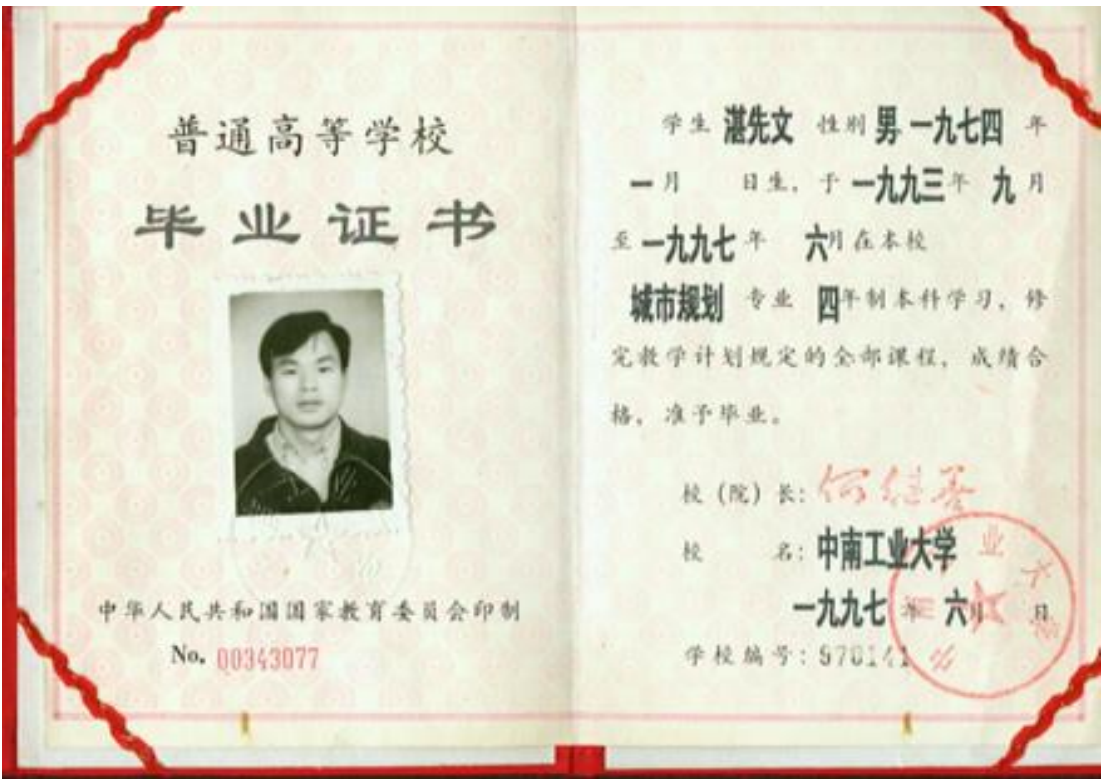 普通高等学校
毕业证书
中华人民共和国国家教育委员会印制
No. 00343077
学生 湛先文 性别 男 一九七四 年
一月 日生，于 一九九三年 九月
至 一九九七 年 六月在本校
城市规划 专业 四年制本科学习，修
完教学计划规定的全部课程，成绩合
格，准予毕业。
校（院）长：何继善
校 名：中南工业大学
一九九七 年 六月 日
学校编号：970141